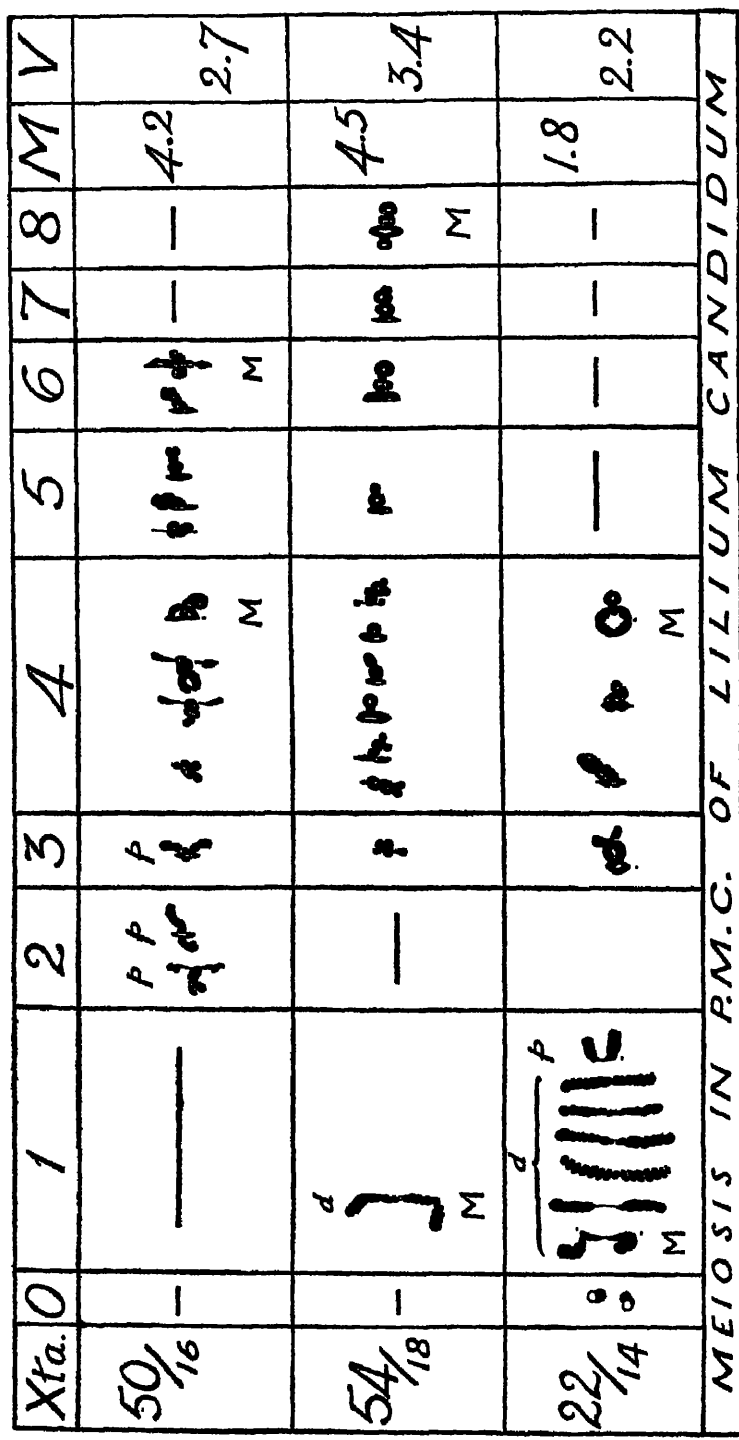 Xta. 0 1 2 3 4 5 6 7 8 M V
50/16 — — p p p M M — — 4.2 2.7
54/18 — d M — M 4.5 3.4
22/14 d M p M — — — — 1.8 2.2
MEIOSIS IN P.M.C. OF LILIUM CANDIDUM